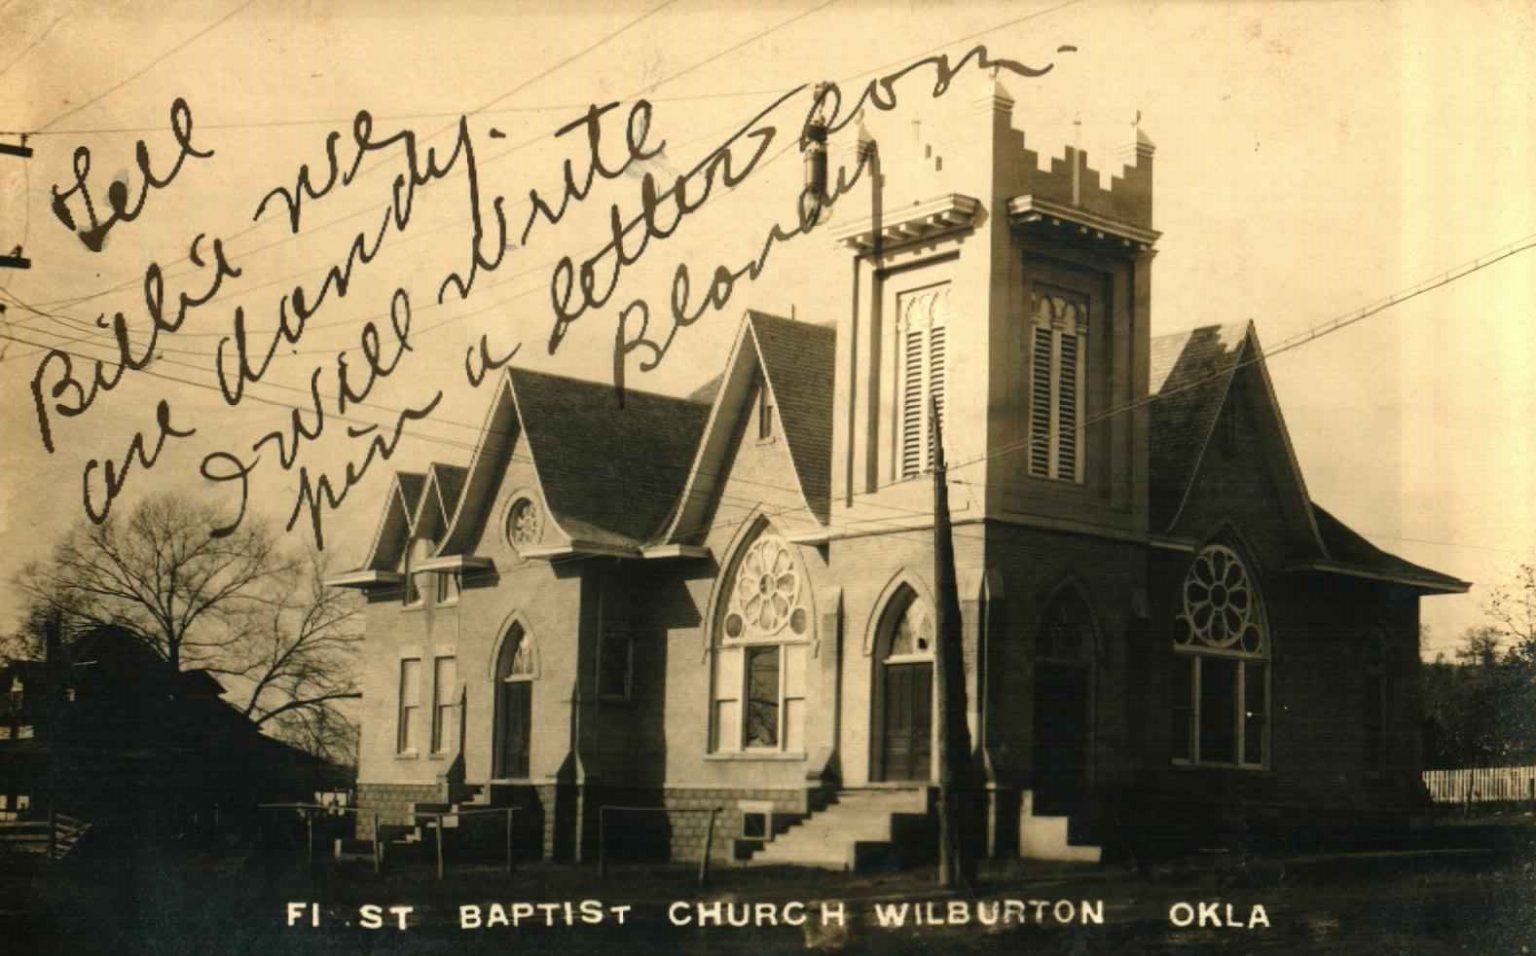 Tell
Billie we
are dandy.
I will write
pin a letter soon -
Blondy
FI ST BAPTIST CHURCH WILBURTON OKLA